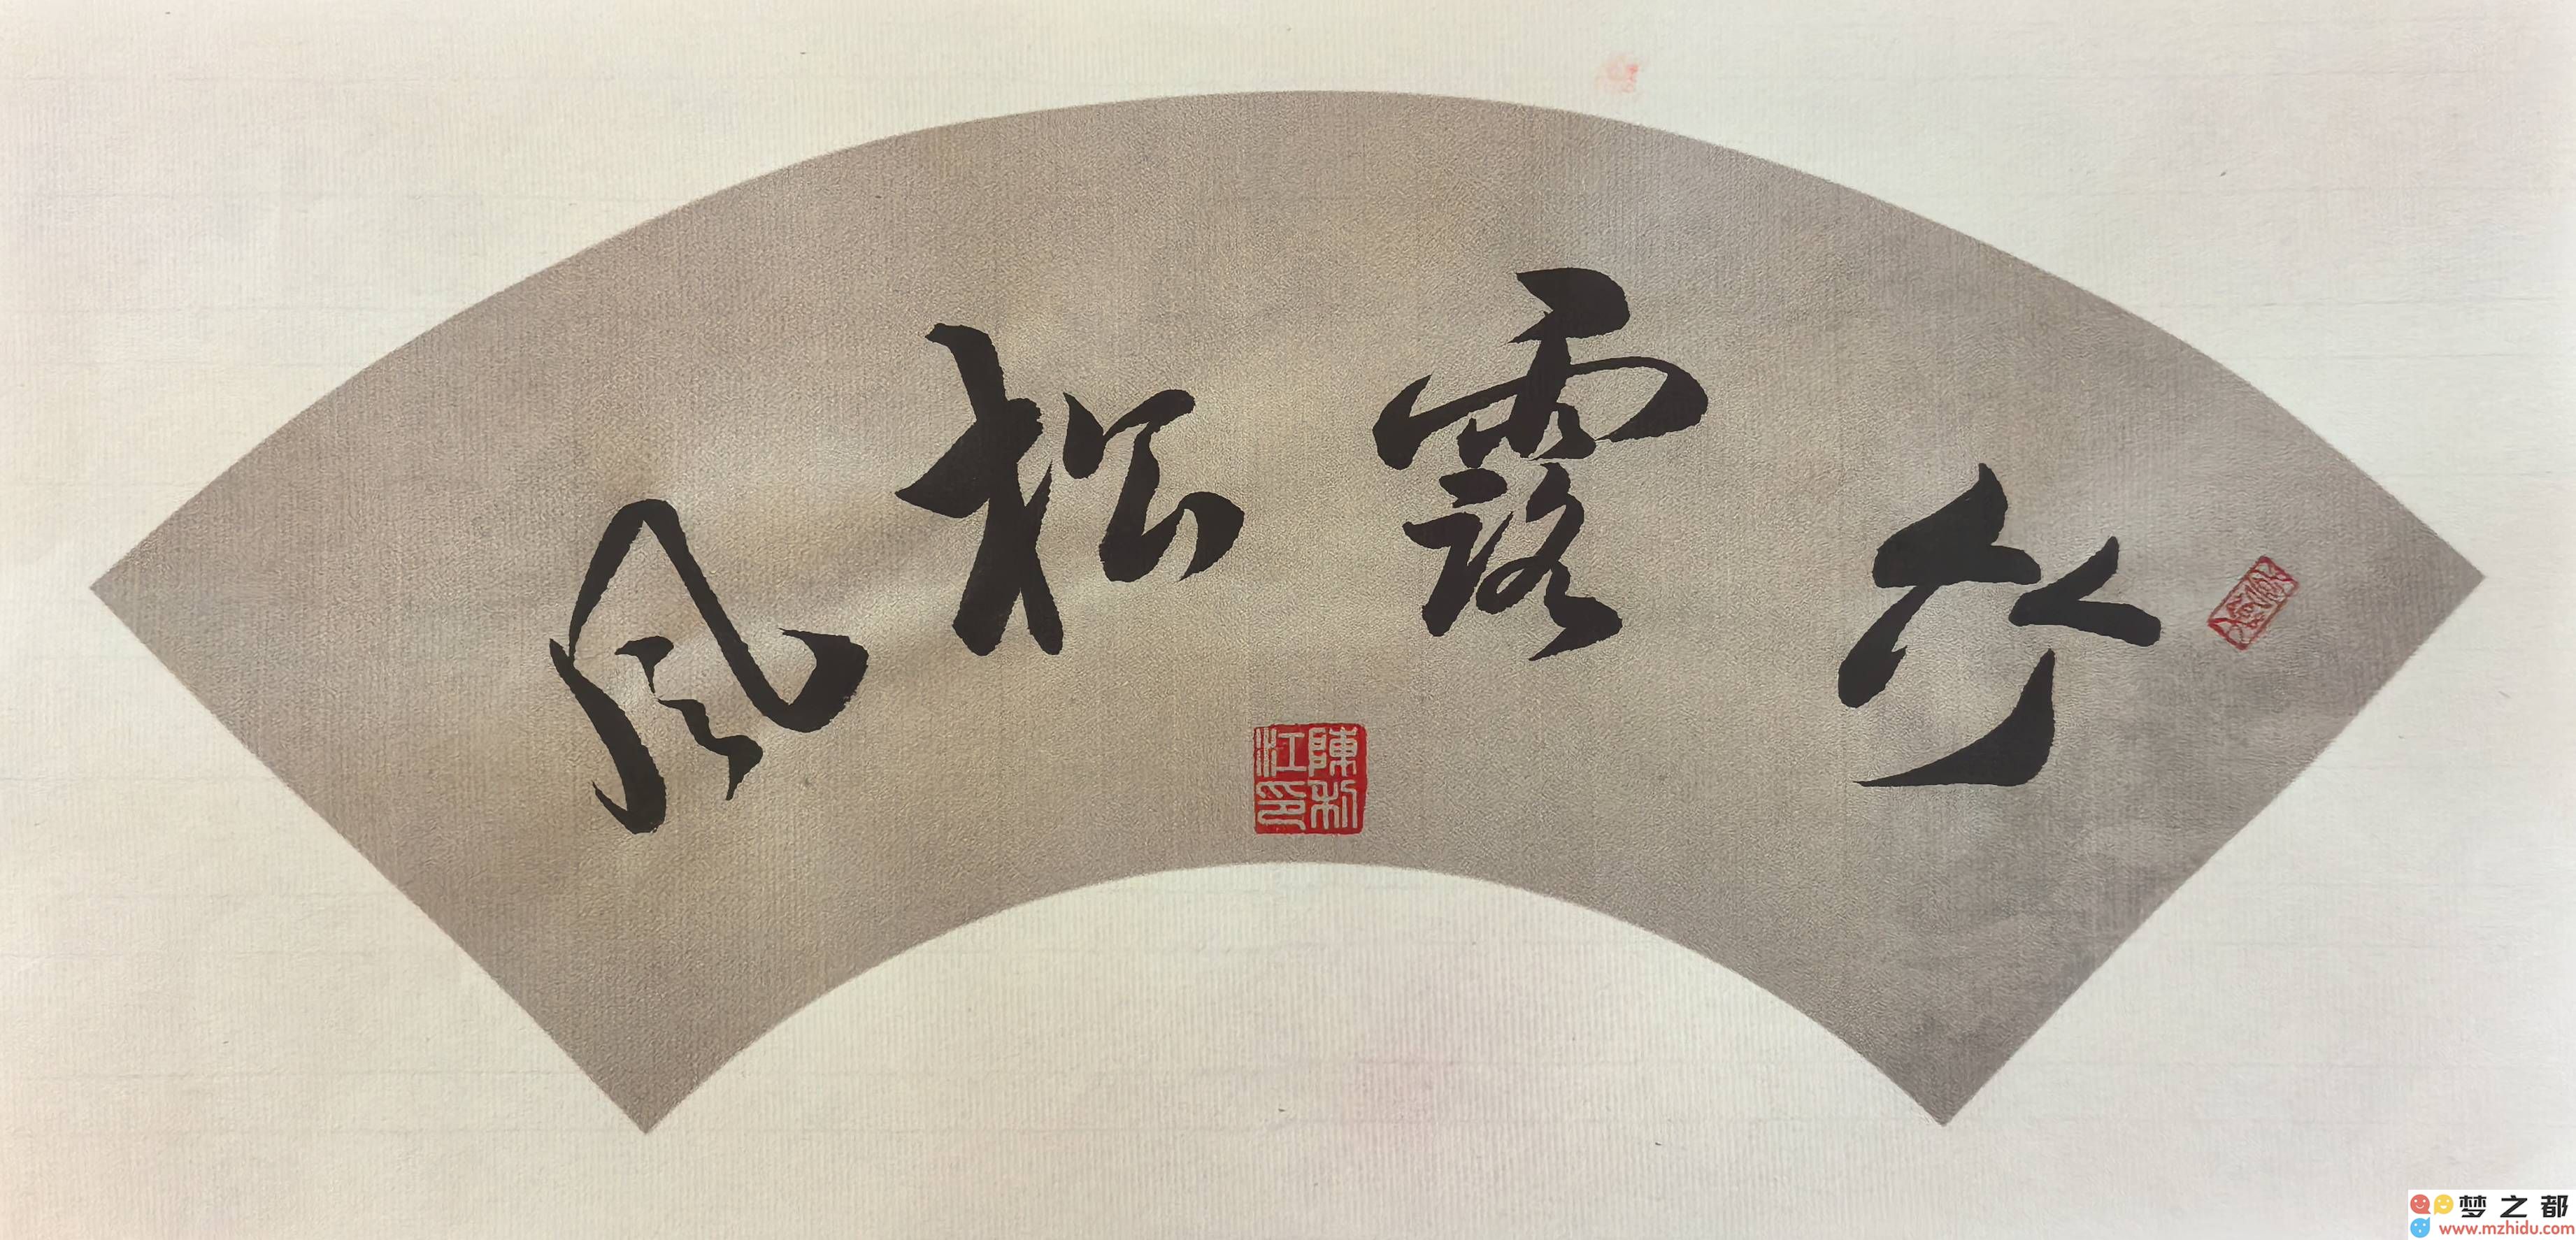 竹露松风
陳利江印
梦之都
www.mzhidu.com